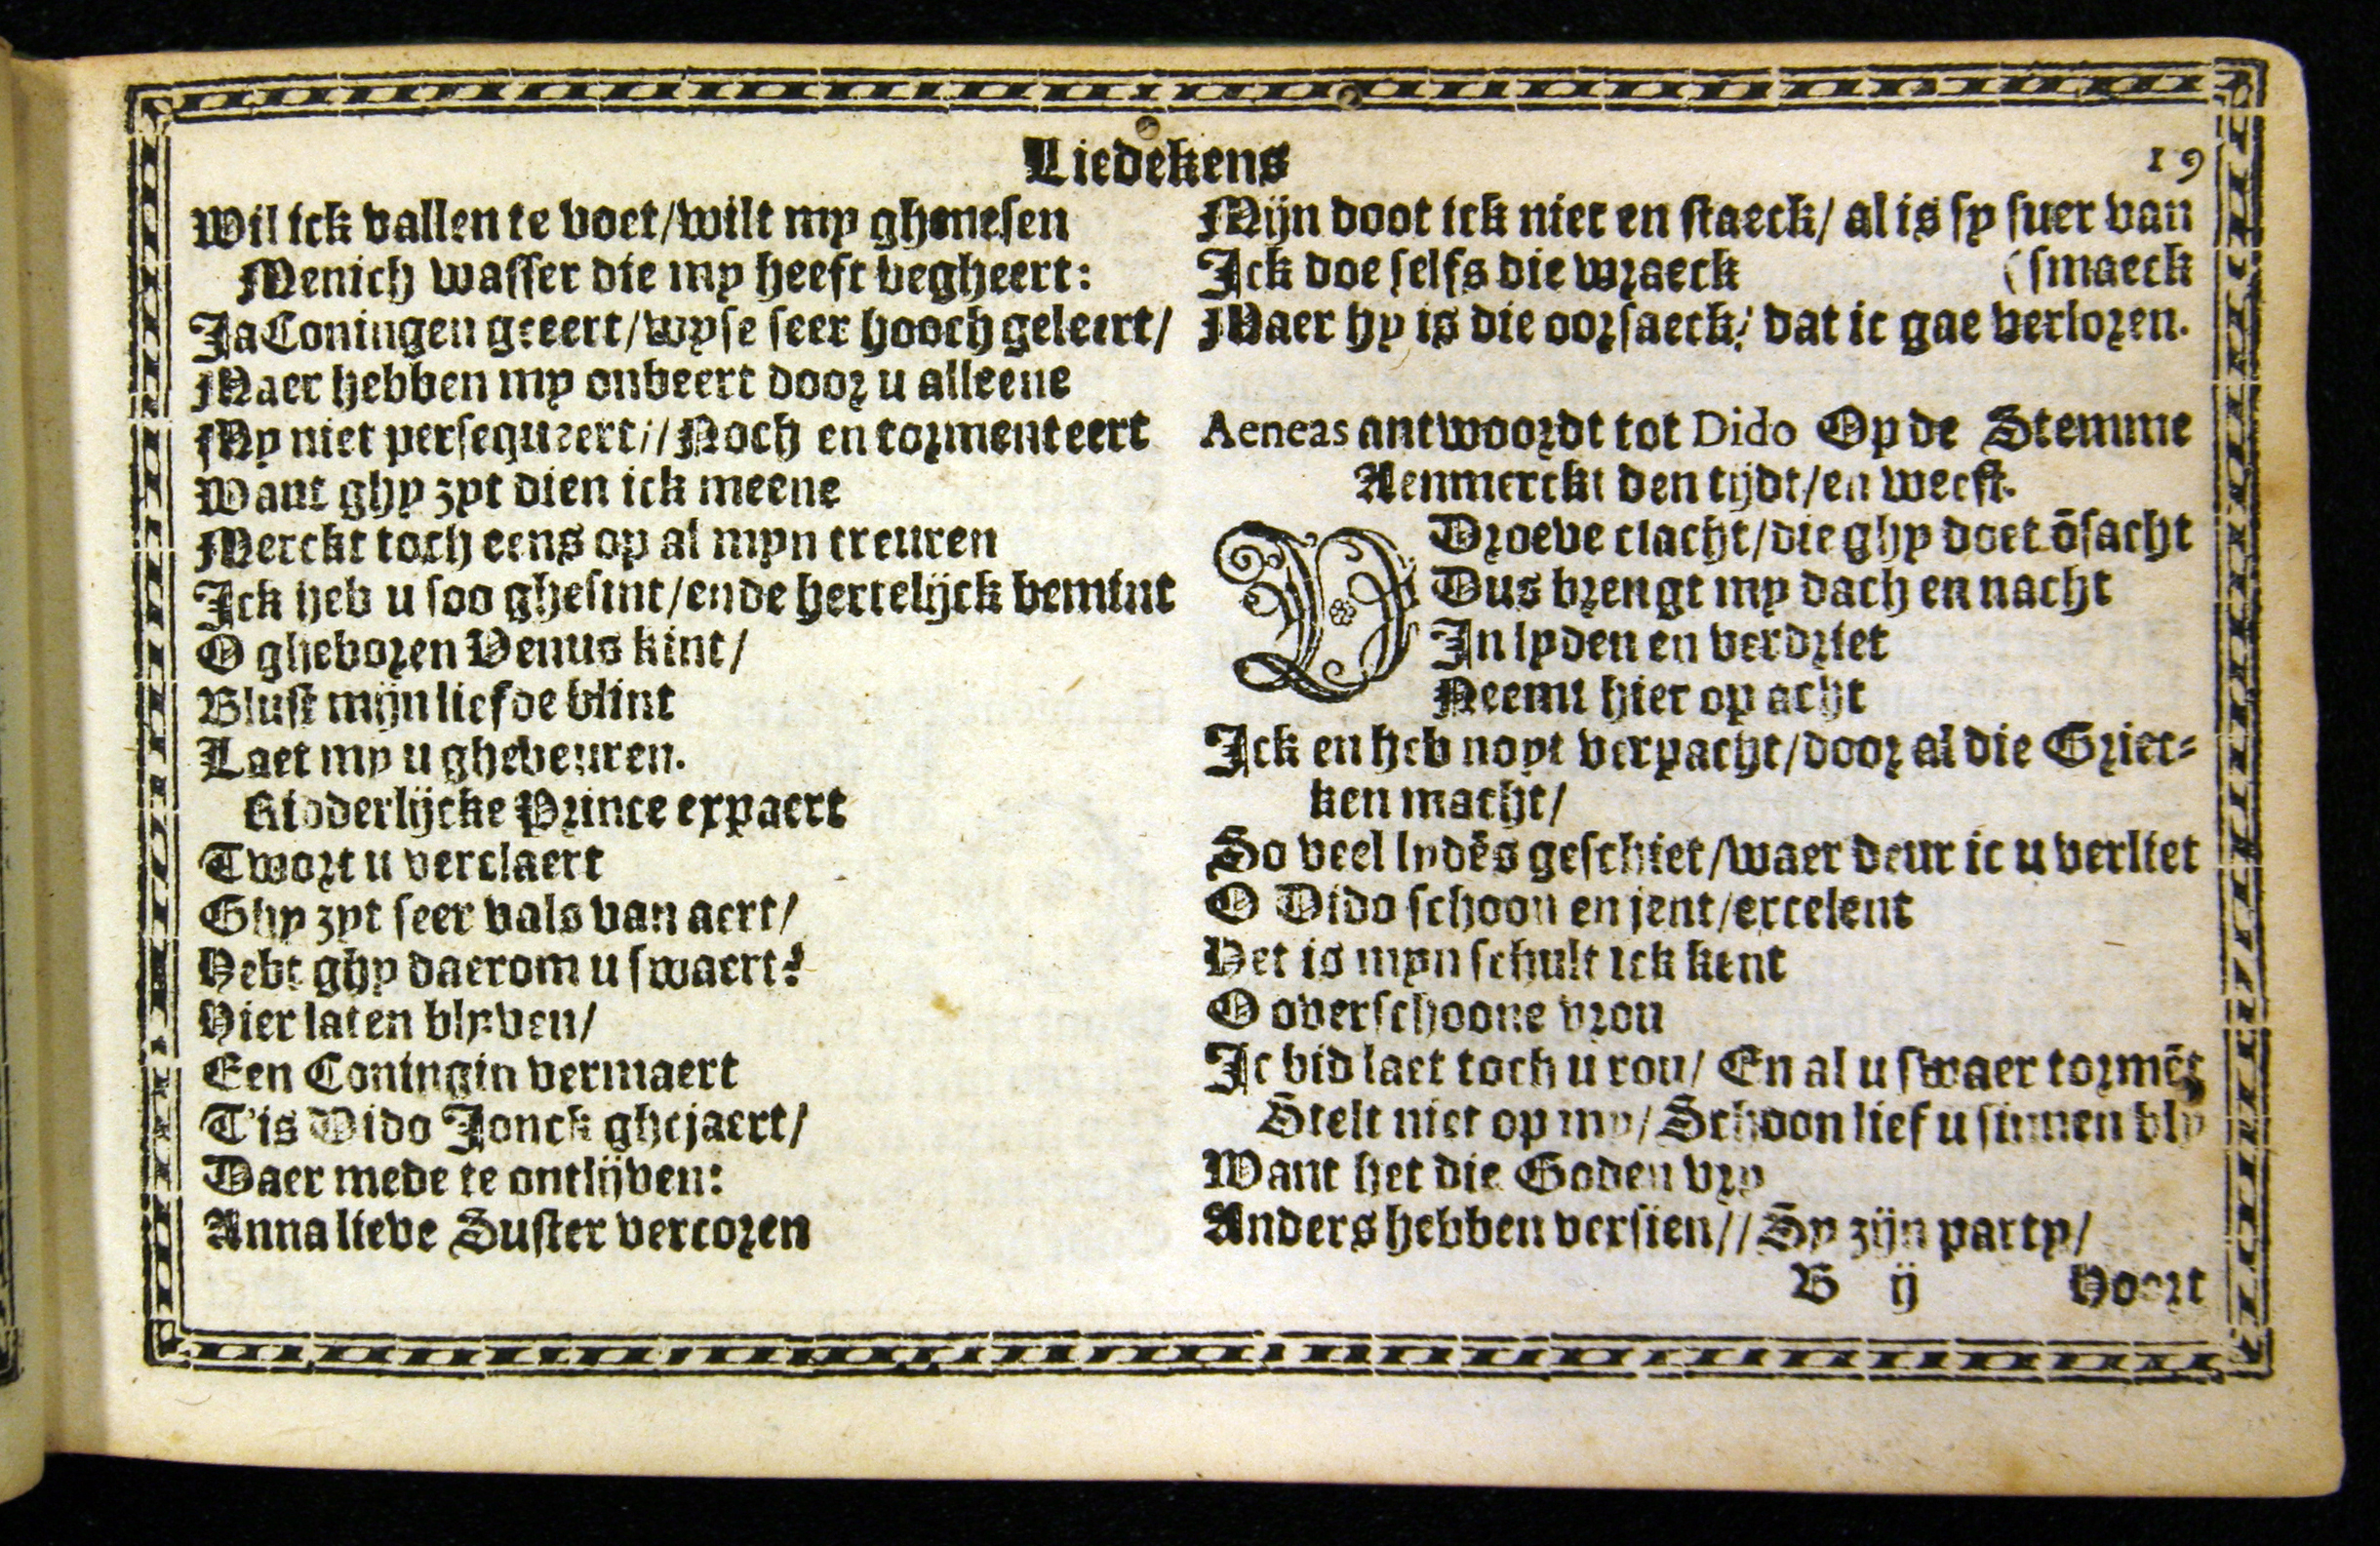 Liedekens
19
Wil ick vallen te voet/wilt my ghenesen
Menich wasser die my heeft begheert:
Ja Coningen geeert/wyse seer hooch geleert/
Maer hebben my onbeert door u alleene
My niet persequeert// Noch en tormenteert
Want ghy zyt dien ick meene
Merckt toch eens op al myn treuren
Ick heb u soo ghesint/ende hertelijck bemint
O gheboren Venus kint/
Blust mijn liefde blint
Laet my u ghebeuren.
Ridderlijcke Prince expaert
Twort u verclaert
Ghy zyt seer vals van aert/
Hebt ghy daerom u swaert?
Hier laten blyven/
Een Coningin vermaert
T'is Dido Jonck ghejaert/
Daer mede te ontlijven:
Anna lieve Suster vercoren
Mijn doot ick niet en staeck/ al is sy suer van
Ick doe selfs die wraeck (smaeck
Maer hy is die oorsaeck/ dat ic gae verloren.
Aeneas antwoordt tot Dido Op de Stemme
Aenmerckt den tijdt/en weest.
V Droeve clacht/die ghy doet ōsacht
Dus brengt my dach en nacht
In lyden en verdriet
Neemt hier op acht
Ick en heb noyt verpacht/door al die Griec-
ken macht/
So veel lydēs geschiet/waer deur ic u verliet
O Dido schoon en jent/excelent
Het is myn schult ick kent
O overschoone vrou
Ic bid laet toch u rou/ En al u swaer tormēt
Stelt niet op my/ Schoon lief u sinnen bly
Want het die Goden vry
Anders hebben versien// Sy zijn party/
B ij Hoort